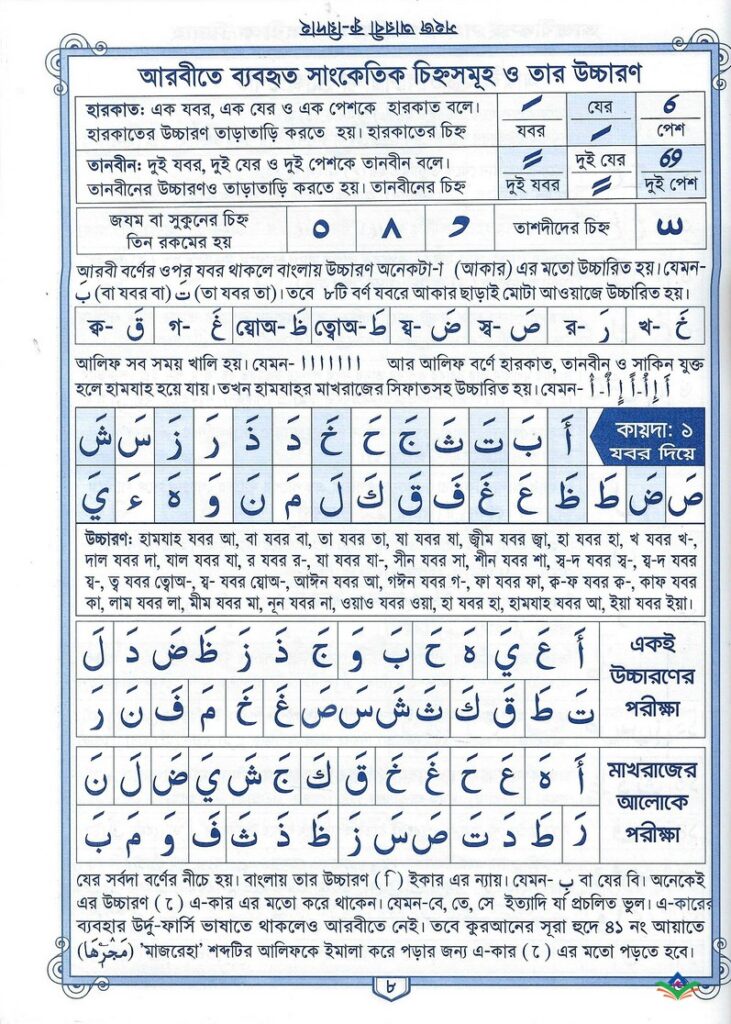 আরবীতে ব্যবহৃত সাংকেতিক চিহ্নসমূহ ও তার উচ্চারণ
হারকাত: এক যবর, এক যের ও এক পেশকে হারকাত বলে।
হারকাতের উচ্চারণ তাড়াতাড়ি করতে হয়। হারকাতের চিহ্ন
যবর
যের
পেশ
তানবীন: দুই যবর, দুই যের ও দুই পেশকে তানবীন বলে।
তানবীনের উচ্চারণও তাড়াতাড়ি করতে হয়। তানবীনের চিহ্ন
দুই যবর
দুই যের
দুই পেশ
জযম বা সুকুনের চিহ্ন
তিন রকমের হয়
তাশদীদের চিহ্ন
আরবী বর্ণের ওপর যবর থাকলে বাংলায় উচ্চারণ অনেকটা-া (আকার) এর মতো উচ্চারিত হয়। যেমন-
بَ (বা যবর বা) تَ (তা যবর তা)। তবে ৮টি বর্ণ যবরে আকার ছাড়াই মোটা আওয়াজে উচ্চারিত হয়।
خَ -খ
رَ -র
صَ -স্ব
ضَ -য্ব
طَ -ত্বোঅ
ظَ -য্বোঅ
غَ -গ
قَ -ক্ব
আলিফ সব সময় খালি হয়। যেমন- ا ا ا ا ا ا ا আর আলিফ বর্ণে হারকাত, তানবীন ও সাকিন যুক্ত
হলে হামযাহ হয়ে যায়। তখন হামযাহর মাখরাজের সিফাতসহ উচ্চারিত হয়। যেমন-
কায়দা: ১
যবর দিয়ে
أَ بَ تَ ثَ جَ حَ خَ دَ ذَ رَ زَ سَ شَ
صَ ضَ طَ ظَ عَ غَ فَ قَ كَ لَ مَ نَ وَ هَ ءَ يَ
উচ্চারণ: হামযাহ যবর আ, বা যবর বা, তা যবর তা, ষা যবর ষা, জ্বীম যবর জ্বা, হা যবর হা, খ যবর খ-,
দাল যবর দা, যাল যবর যা, র যবর র-, যা যবর যা-, সীন যবর সা, শীন যবর শা, স্ব-দ যবর স্ব-, য্ব-দ যবর
য্ব-, ত্ব যবর ত্বোঅ-, য্ব- যবর য্বোঅ-, আঈন যবর আ, গঈন যবর গ-, ফা যবর ফা, ক্ব-ফ যবর ক্ব-, কাফ যবর
কা, লাম যবর লা, মীম যবর মা, নূন যবর না, ওয়াও যবর ওয়া, হা যবর হা, হামযাহ যবর আ, ইয়া যবর ইয়া।
একই
উচ্চারণের
পরীক্ষা
أَ عَ يَ هَ حَ بَ وَ جَ ذَ زَ ظَ ضَ دَ لَ
تَ طَ قَ كَ ثَ شَ سَ صَ غَ خَ مَ فَ نَ رَ
মাখরাজের
আলোকে
পরীক্ষা
أَ هَ عَ حَ غَ خَ قَ كَ جَ شَ يَ ضَ لَ نَ
رَ طَ دَ تَ صَ سَ زَ ظَ ذَ ثَ فَ وَ مَ بَ
যের সর্বদা বর্ণের নীচে হয়। বাংলায় তার উচ্চারণ (ি) ইকার এর ন্যায়। যেমন- بِ বা যের বি। অনেকেই
এর উচ্চারণ (ে) এ-কার এর মতো করে থাকেন। যেমন-বে, তে, সে ইত্যাদি যা প্রচলিত ভুল। এ-কারের
ব্যবহার উর্দু-ফার্সি ভাষাতে থাকলেও আরবীতে নেই। তবে কুরআনের সূরা হুদে ৪১ নং আয়াতে
(مَجْرٰىهَا) 'মাজরেহা' শব্দটির আলিফকে ইমালা করে পড়ার জন্য এ-কার (ে) এর মতো পড়তে হবে।
৮